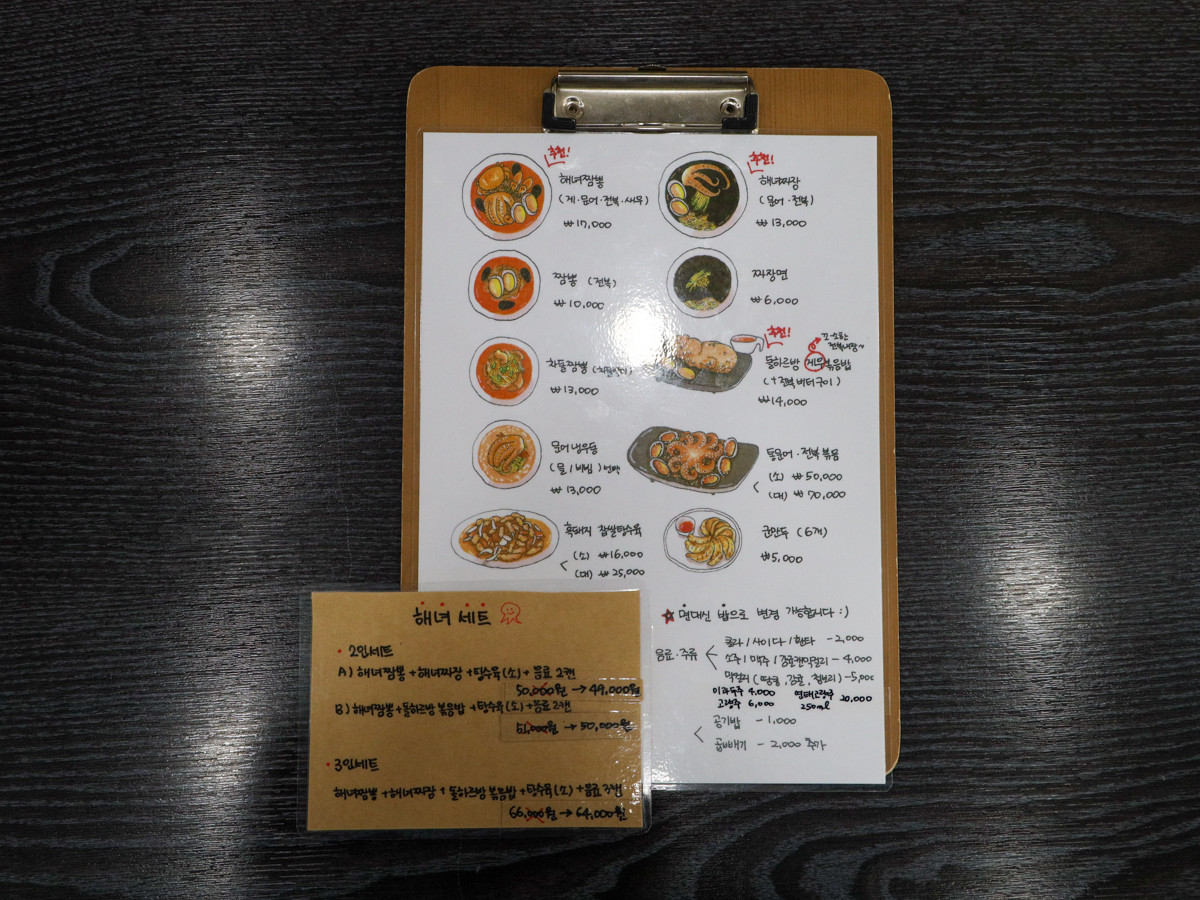 추천!
해녀짬뽕
(게·문어·전복·새우)
₩17,000
추천!
해녀짜장
(문어·전복)
₩13,000
짬뽕 (전복)
₩10,000
짜장면
₩6,000
차돌짬뽕
₩13,000
추천!
꼬소한
전복내장~
돌하르방 게우볶음밥
(+전복버터구이)
₩14,000
문어냉우동
(물/비빔) 택
₩13,000
통문어·전복볶음
(소) ₩50,000
(대) ₩70,000
흑돼지 찹쌀탕수육
(소) ₩16,000
(대) ₩25,000
군만두 (6개)
₩5,000
면대신 밥으로 변경 가능합니다 :)
음료·주류
콜라/사이다/환타 -2,000
소주/맥주/감귤캔막걸리 -4,000
막걸리 (땅콩, 감귤, ) -5,000
이과두주 4,000
고량주 6,000
연태고량주 20,000
250ml
공기밥 - 1,000
곱빼기 - 2,000 추가
해녀 세트
• 2인세트
A) 해녀짬뽕+해녀짜장+탕수육(소)+음료 2캔
50,000원 → 49,000원
B) 해녀짬뽕+돌하르방 볶음밥 +탕수육(소)+음료 2캔
51,000원 → 50,000원
• 3인세트
해녀짬뽕+해녀짜장+돌하르방 볶음밥+탕수육(소)+음료 3캔
66,000원 → 64,000원